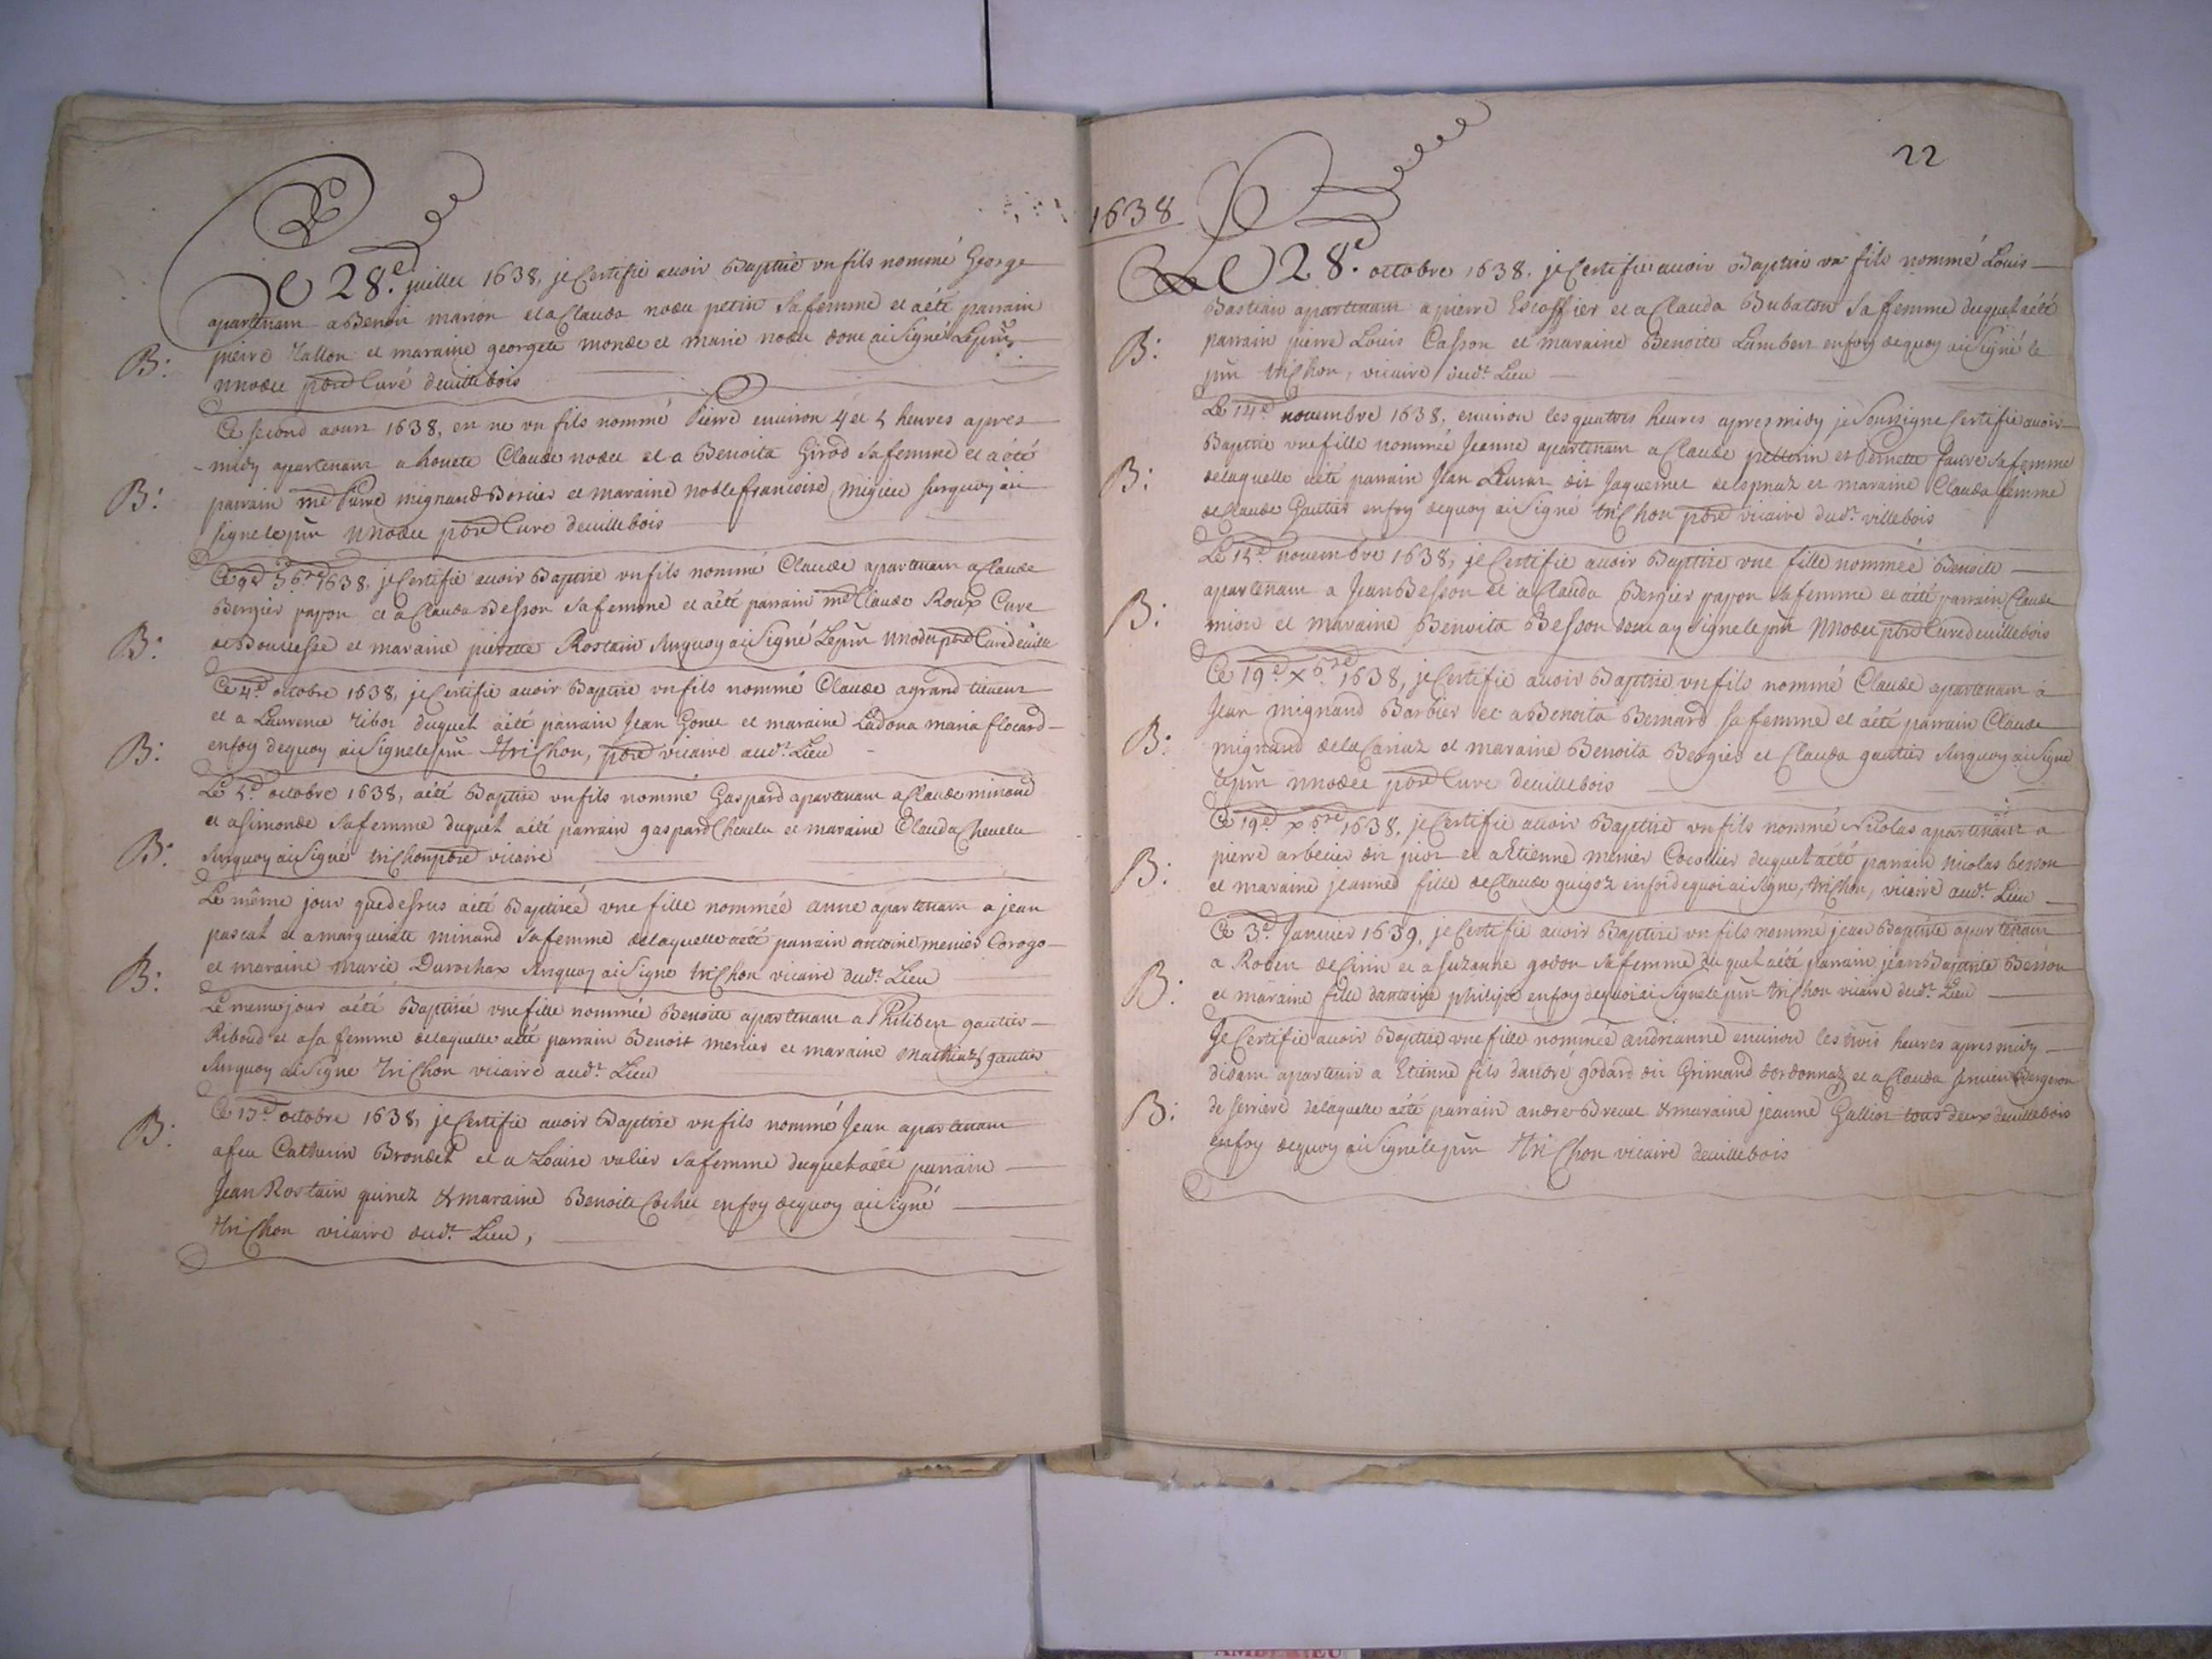 Ce 28.e juillet 1638, je Certifie auoir Baptise vn fils nommé George
apartenam a Benon manon et a Clauda nodu petin sa femme et a été parrain
B: pierre Tallon et maraine georgete monde et marie nodu dont ai signé Lepñt
nnodu pbre Curé deuillebois
Ce second aoust 1638, en ne vn fils nommé Pierre enuiron 4 et 5 heures apres
midy apartenam a honete Claude nodu et a Benoita Girod sa femme et a été
B: parrain me Pierre mignand Borcier et maraine noble francoise migieu surquoy ai
signe le pñt nnodu pbre Cure deuillebois
Ce 9.e 1638, je Certifie auoir Baptise vn fils nommé Claude apartenam a Claude
Bergier papon et a Clauda Besson sa femme et a été parrain me Claude Roux Cure
B: et maraine pierrette Rostain surquoy ai signé Lepñt nnodu pbre Cure deuille
Ce 4.e octobre 1638, je Certifie auoir Baptise vn fils nommé Claude a grand
et a Laurence Ribot duquel a été parrain Jean Gonet et maraine Ladona maria flocard
B: en foy dequoy ai signe le pñt trichon, pbre vicaire aud.t Lieu
Le 5.e octobre 1638, a été Baptise vn fils nommé Gaspard apartenam a Claude minand
et a simonde sa femme duquel a été parrain gaspard Cheuelu et maraine Clauda Cheuelu
B: surquoy ai signé trichon pbre vicaire
Le même jour que dessus a été Baptisée vne fille nommée anne apartenam a jean
pascal et a marguerite minand sa femme de laquelle a été parrain antoine menier Corogo
B: et maraine marie Durochax surquoy ai signe trichon vicaire dud.t Lieu
Le meme jour a été Baptisée vne fille nommée Benoite apartenam a Philibert gautier
Riboud et a sa femme de laquelle a été parrain Benoit menier et maraine Mathiaz gautier
surquoy ai signe trichon vicaire aud.t Lieu
B: Ce 13.e octobre 1638, je Certifie auoir Baptise vn fils nommé Jean apartenam
a feu Catherin Brondel et a Louise valier sa femme duquel a été parrain
Jean Rostain guinez & maraine Benoite Cochet en foy dequoy ai signé
trichon vicaire dud.t Lieu,
22
1638
Ce 28.e octobre 1638. je Certifie auoir Baptise vn fils nommé Louis
Bastian apartenam a pierre Escoffier et a Clauda Bubaton sa femme duquel a été
B: parrain pierre Louis Casson et maraine Benoite Lambert en foy dequoy ai signé le
pñt trichon, vicaire dud.t Lieu
Le 14.e nouembre 1638, enuiron les quatres heures apres midy je Soussigne Certifie auoir
Baptise vne fille nommée Jeanne apartenam a Claude pellorin et Pernette faure sa femme
B: de laquelle a été parrain Jean dit Jaquemet et maraine Clauda femme
de Claude Gautier en foy dequoy ai signe trichon pbre vicaire dud.t villebois
Le 15.e nouembre 1638, je Certifie auoir Baptise vne fille nommée Benoite
apartenam a Jean Besson et a Clauda Bergier papon sa femme et a été parrain Claude
B: mion et maraine Benoita Besson dont ay signe le pñt nnodu pbre Cure deuillebois
Ce 19.e Xbre 1638, je Certifie auoir Baptise vn fils nommé Claude apartenam a
Jean mignand Barbier et a Benoita Bernard sa femme et a été parrain Claude
B: mignand de la et maraine Benoita Bergier et Clauda gautier surquoy ai signe
le pñt nnodu pbre Cure deuillebois
Ce 19.e xbre 1638, je Certifie auoir Baptise vn fils nommé Nicolas apartenam a
pierre arbelier dit piot et a Etienne menier duquel a été parrain nicolas besson
B: et maraine jeanne fille de Claude guigoz en foi dequoi ai signe, trichon, vicaire aud.t Lieu
Ce 3.e Januier 1639, je Certifie auoir Baptise vn fils nommé jean Baptiste apartenam
a Robin de Cirin et a suzanne godon sa femme duquel a été parrain jean Baptiste Besson
B: et maraine fille d'antoine philipe en foy dequoi ai signe le pñt trichon vicaire dud.t Lieu
Je Certifie auoir Baptise vne fille nommée andrianne enuiron les trois heures apres midy
disant apartenir a Etienne fils d'andré godard dit Grimand dordonnaz et a Clauda Bergeron
B: de serriere de laquelle a été parrain andre Breuet & maraine jeanne Galliot tous deux deuillebois
en foy dequoy ai signe le pñt trichon vicaire deuillebois